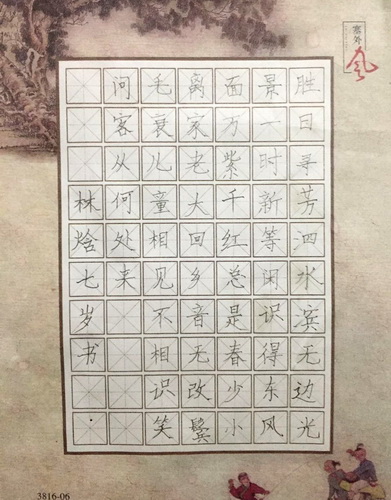 胜日寻芳泗水滨无边光
景一时新等闲识得东风
面万紫千红总是春少小
离家老大回乡音无改鬓
毛衰儿童相见不相识笑
问客从何处来
林焓七岁书
3816-06